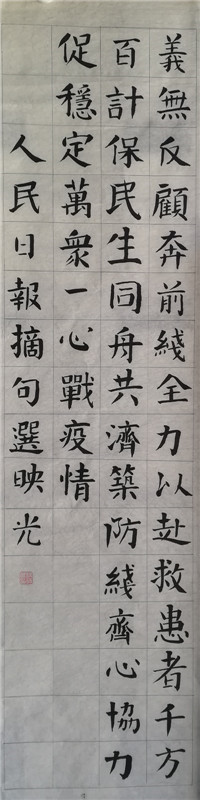 義無反顧奔前綫全力以赴救患者千方
百計保民生同舟共濟築防綫齊心協力
促穩定萬衆一心戰疫情
人民日報摘句選映光